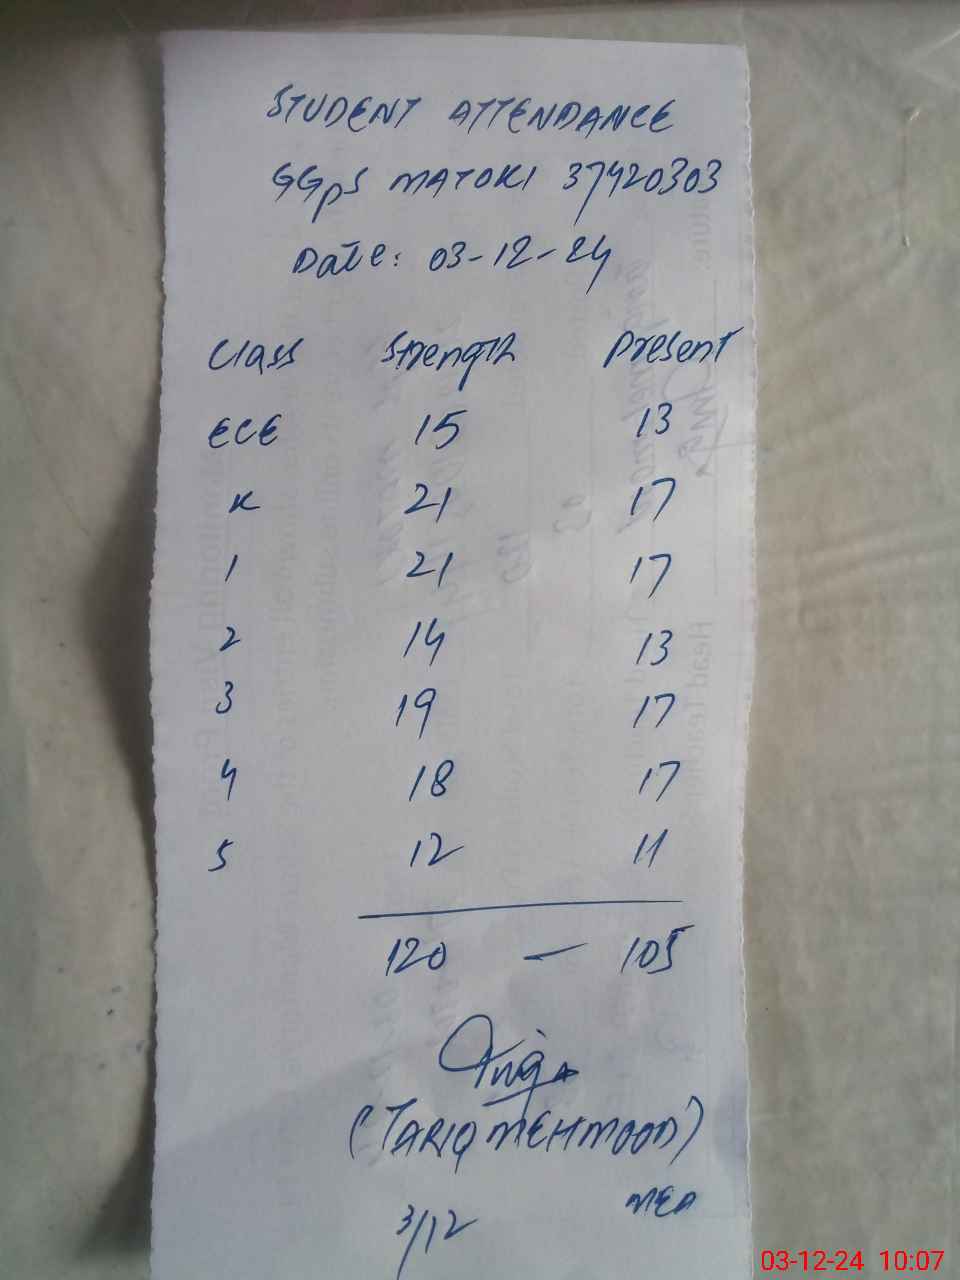 STUDENT ATTENDANCE
GGPS MATOKI 37420303
Date: 03-12-24
Class Strength Present
ECE 15 13
K 21 17
1 21 17
2 14 13
3 19 17
4 18 17
5 12 11
120 — 105
(TARIQ MEHMOOD)
MEA
3/12
03-12-24 10:07